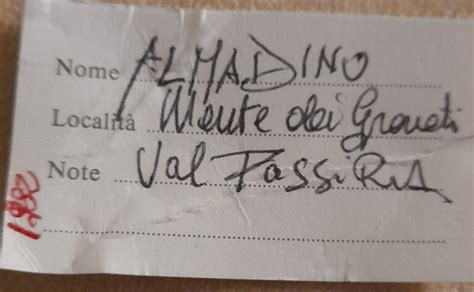 Nome ALMADINO
Località Monte dei Granati
Note Val PassiRiA
1982